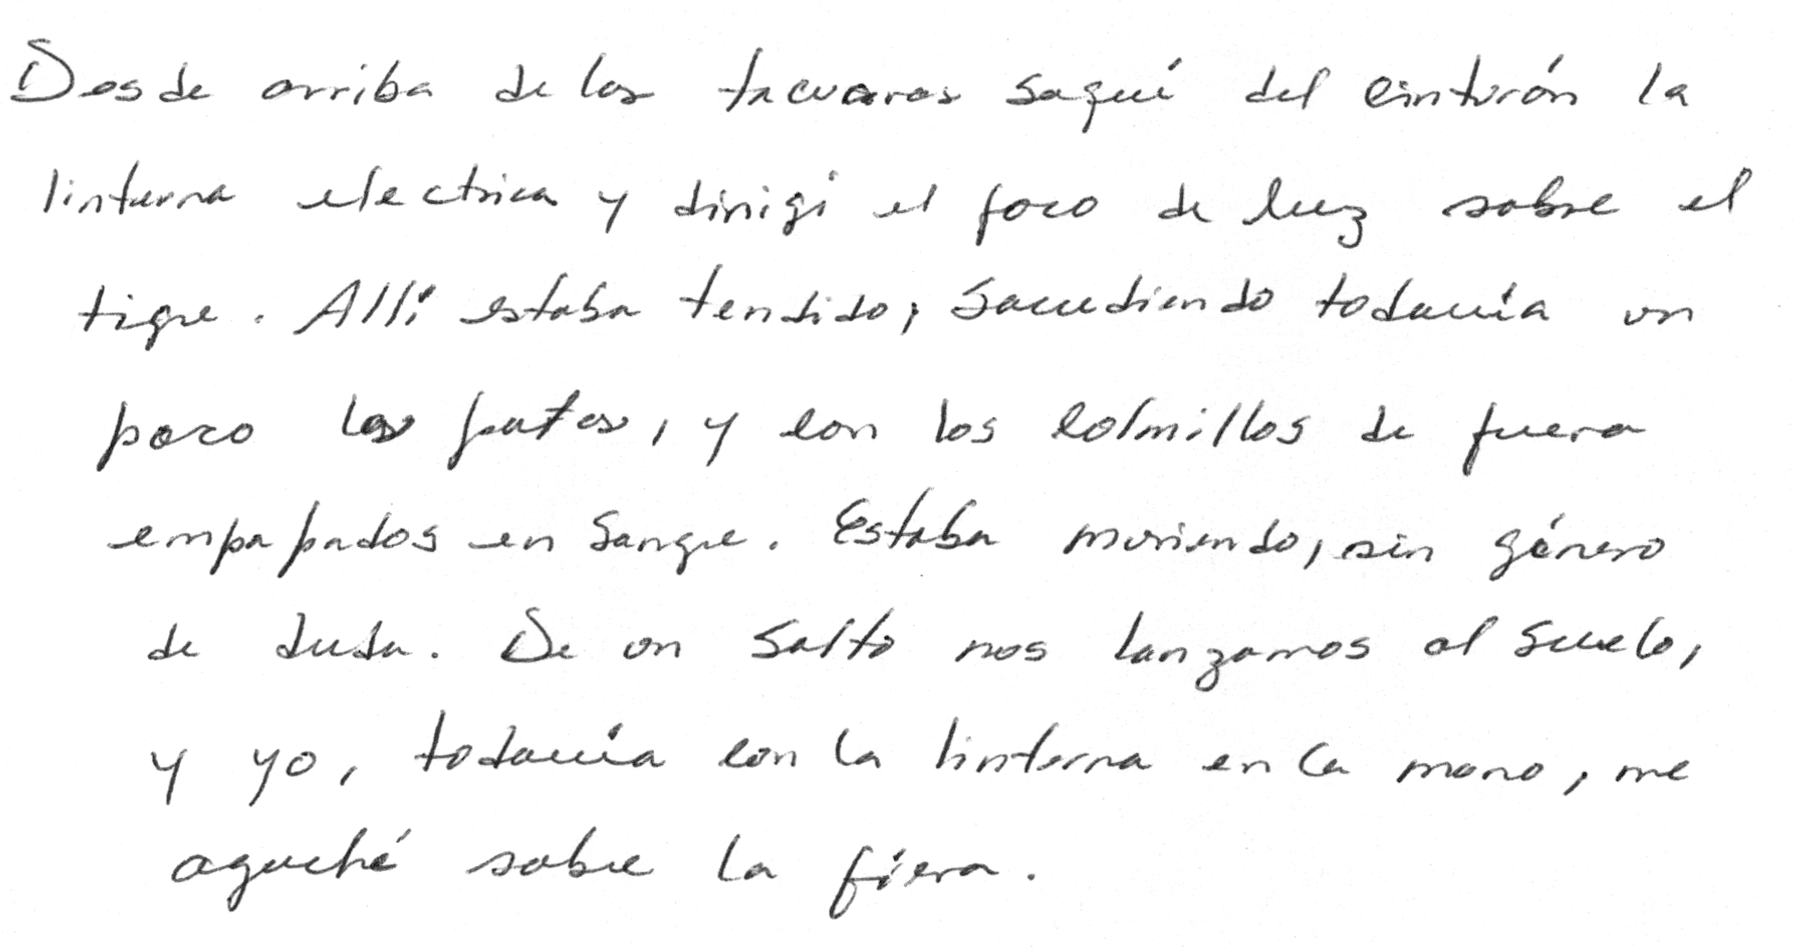 Desde arriba de las tacuaras saqué del cinturón la
linterna electrica y dirigí el foco de luz sobre el
tigre. Allí estaba tendido, sacudiendo todavía un
poco las patas, y con los colmillos de fuera
empapados en sangre. Estaba muriendo, sin género
de duda. De un salto nos lanzamos al suelo,
y yo, todavía con la linterna en la mano, me
agaché sobre la fiera.